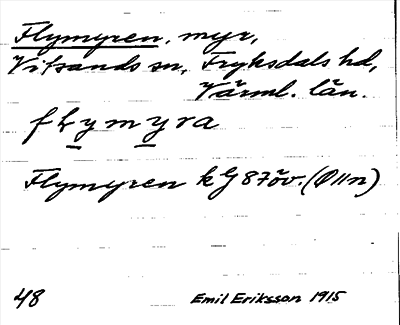 Flymyren, myr,
Vitsands sn, Fryksdals hd,
Värml. län.
flymyra
Flymyren kG 87öv. (Ø11n)
48 Emil Eriksson 1915